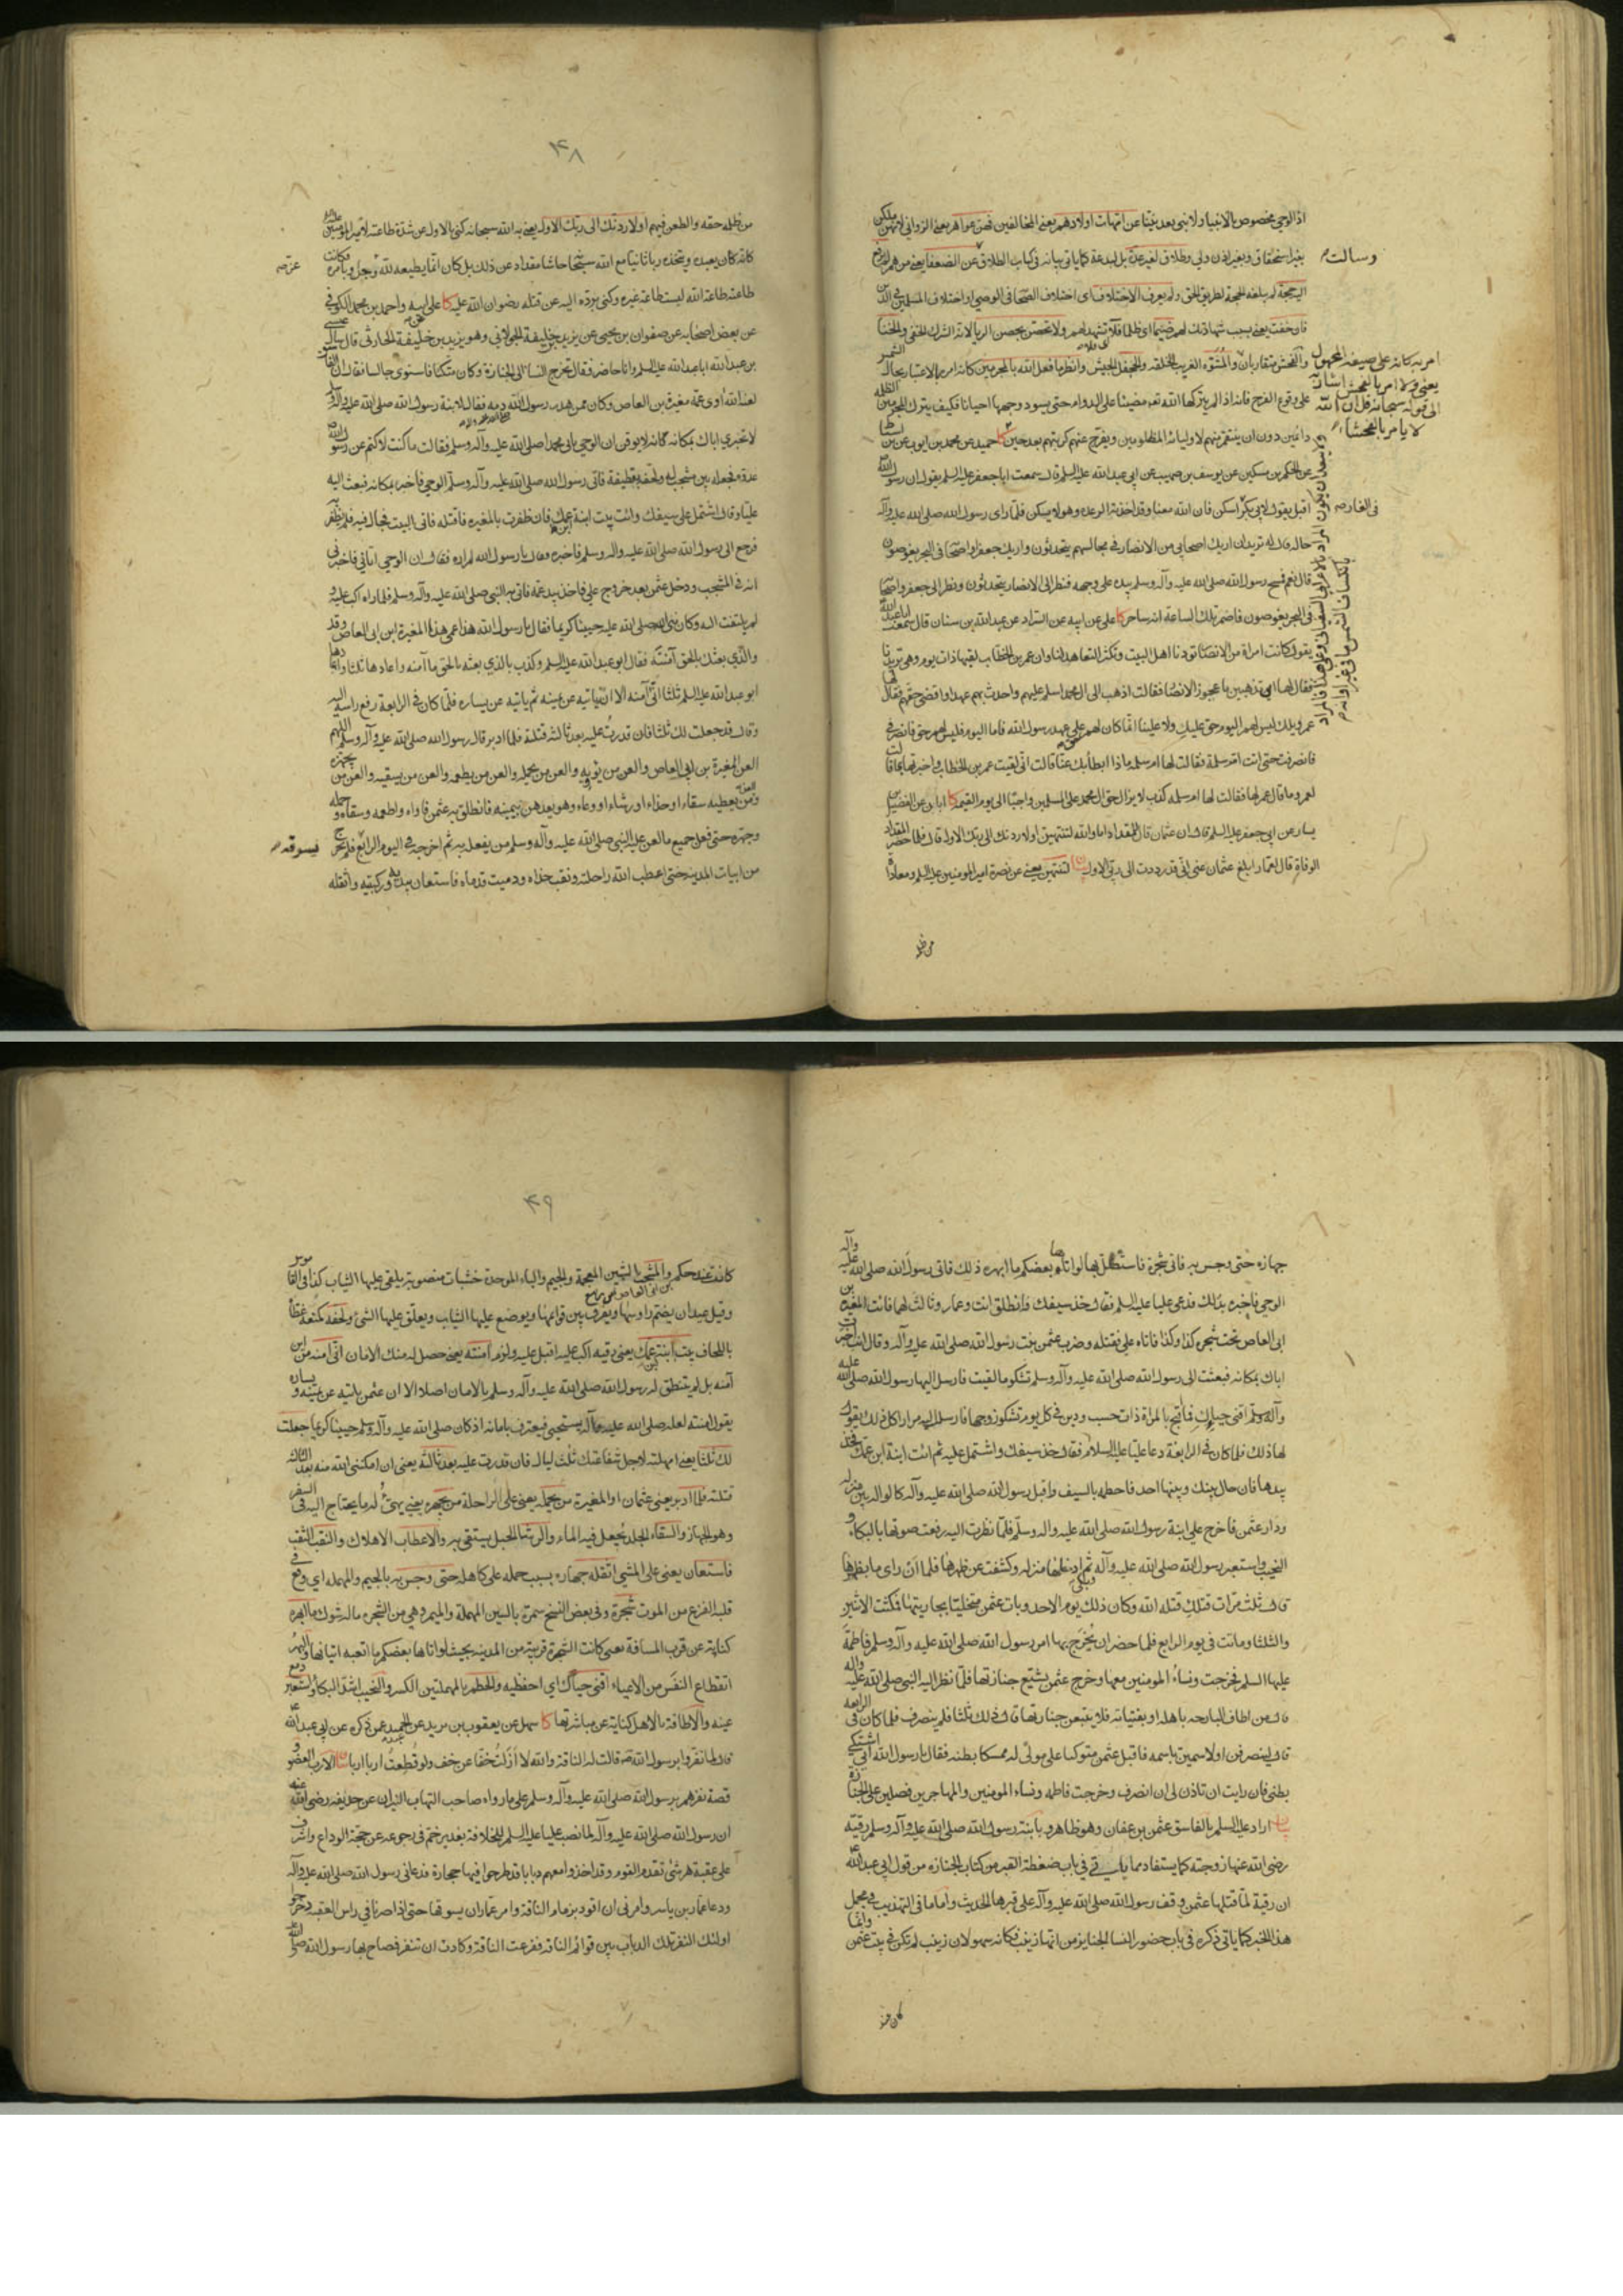 اذ الوحي مخصوص بالانبياء ولا نبي بعد نبينا عن امهات اولادهم يعني المخالفين فهن عواهر يعني الزواني لانهن ملكن
بغير استحقاق وبغير اذن ولي وطلاق لغير عدة بل لبدعة كما ياتي بيانه في كتاب الطلاق عن الضعفا يعني من هم
اليه حجة لم يبلغه الحجة لطريق الحق ولم يعرف الاختلاف اى اختلاف الصحابة في الوصي او اختلاف المسلمين في الدين
فان خفت يعني بسبب شهادتك لهم ضيما اى ظلما فلا تشهد لهم ولا تحصن بحصن الريا لانه الشرك الخفي والخنا
والفحش متقاربان والمشوه الغريب الخلقه والجحفل الجيش وانظر ما فعل الله بالمجرمين كانه امر بالاعتبار بحال
على وقوع الفرج فانه اذا لم يتركها الله تعه مضيئا على الدوام حتى يسود وجهها احيانا فكيف يترك المجرمين
دائمين دون ان ينتقم منهم لاوليائه المظلومين ويفرج عنهم كربتهم بعد حين كا حميد عن محمد بن ايوب عن
عن الحكم بن مسكين عن يوسف بن صهيب عن ابي عبد الله عليه السلم قال سمعت ابا جعفر عليه السلم يقول ان رسول الله
اقبل يقول لابي بكر اسكن فان الله معنا وقد اخذته الرعده وهو لا يسكن فلما راى رسول الله صلى الله عليه وآله
حاله قال له تريد ان اريك اصحابي من الانصار في مجالسهم يتحدثون واريك جعفرا واصحابه في البحر يغوصون
قال نعم فمسح رسول الله صلى الله عليه وآله وسلم بيده على وجهه فنظر الى الانصار يتحدثون ونظر الى جعفر واصحابه
في البحر يغوصون فاضمر تلك الساعة انه ساحر كا على عن ابيه عن السراد عن عبد الله بن سنان قال سمعت ابا عبد الله
يقول كانت امراة من الانصار تودنا اهل البيت وتكثر التعاهد لنا وان عمر بن الخطاب لقيها ذات يوم وهي تريدنا
فقال لها اين تذهبين يا عجوز الانصار فقالت اذهب الى ال محمد اسلم عليهم واحدث بهم عهدا واقضي حقهم فقال لها
عمر ويلك ليس لهم اليوم حق عليك ولا علينا انما كان لهم حق على عهد رسول الله فاما اليوم فليس لهم حق فانصرفي
فانصرفت حتى اتت ام سلمة فقالت لها ام سلمه ماذا ابطأ بك عنا قالت اني لقيت عمر بن الخطاب واخبرتها بما قالت
لعمر وما قال عمر لها فقالت لها ام سلمه كذب لا يزال حق ال محمد على المسلمين واجبا الى يوم القيمة كا ابان عن الفضيل بن
يسار عن ابي جعفر عليه السلم قال ان عثمان قال للمقداد اما والله لتنتهين او لاردنك الى ربك الاول قال فلما حضر المقداد
الوفاة قال لعمار ابلغ عثمان عني اني قد رددت الى ربي الاول لتنتهين يعني عن نصرة امير المومنين عليه السلم ومعاداة
من ظلمه
وسالت
امر به كانه على صيغه المجهول
يعني ولا امر بالفحش اشارة
الى قوله سبحانه قل ان الله
لا يامر بالفحشاء
في الغار
۴۸
من ظلمه حقه والطعن فيهم او لاردنك الى ربك الاول يعني به الله سبحانه كنى بالاول عن شدة طاعته لامير المومنين عليه السلم
كانه كان يعبده ويتخذه ربا ثانيا مع الله سبحانه حاشا مقداد عن ذلك بل كان انما يطيعه لله عز وجل وبامره فكانت
طاعته طاعة الله ليست طاعة غيره وكنى برده اليه عن قتله رضوان الله عليه كا على عن ابيه واحمد بن محمد الكوفي
عن بعض اصحابه عن صفوان بن يحيى عن يزيد بن خليفة الخولاني وهو يزيد بن خليفة الحارثي قال سال عيسى
بن عبد الله ابا عبد الله عليه السلم وانا حاضر فقال تخرج النساء الى الجنازة وكان متكئا فاستوى جالسا فقال ان الفاسق
لعنه الله آوى عمه مغيرة بن العاص وكان ممن هدر رسول الله دمه فقال لابنة رسول الله صلى الله عليه وآله وسلم
لا تخبري اباك بمكانه كانه لا يوقن ان الوحي ياتي محمدا صلى الله عليه وآله وسلم فقالت ما كنت لاكتم عن رسول الله
عدوه فجعله بين مشجب له ولحفه بقطيفة فاتى رسول الله صلى الله عليه وآله وسلم الوحي فاخبره بمكانه فبعث اليه
عليا وقال اشتمل على سيفك وائت بيت ابنة ابن عمك فان ظفرت بالمغيره فاقتله فاتى البيت فجال فيه فلم يظفر به
فرجع الى رسول الله صلى الله عليه وآله وسلم فاخبره وقال يا رسول الله لم اره فقال ان الوحي اتاني فاخبرني
انه في المشجب ودخل عثمن بعد خروج علي فاخذ بيد عمه فاتى به النبي صلى الله عليه وآله وسلم فلما راه اكب عليه و
لم يلتفت اليه وكان نبي الله صلى الله عليه حييا كريما فقال يا رسول الله هذا عمي هذا المغيرة ابن ابي العاص وقد
والذي بعثك بالحق آمنته فقال ابو عبد الله عليه السلم وكذب والذي بعثه بالحق ما آمنه واعادها ثلثا واعادها
ابو عبد الله عليه السلم ثلثا انى آمنه الا انه ياتيه عن يمينه ثم ياتيه عن يساره فلما كان في الرابعة رفع راسه اليه
وقال قد جعلت لك ثلثا فان قدرت عليه بعد ثالثة قتلته فلما ادبر قال رسول الله صلى الله عليه وآله وسلم اللهم
العن المغيرة بن ابي العاص والعن من يؤويه والعن من يحمله والعن من يطعمه والعن من يسقيه والعن من يجهزه
والعن من يعطيه سقاء او حذاء او رشاء او وعاء وهو يعدهن بيمينه فانطلق به عثمن فآواه واطعمه وسقاه وحمله
وجهزه حتى فعل جميع ما لعن عليه النبي صلى الله عليه وآله وسلم من يفعله به ثم اخرجه في اليوم الرابع فلم يخرج
من ابيات المدينه حتى اعطب الله راحلته ونقب حذاه ودميت قدماه فاستعان بيديه وركبتيه واثقله
فيسوقه
جهازه حتى وجس به فاتى شجرة فاستظل بها لو اتاها بعضكم ما ابهره ذلك فاتى رسول الله صلى الله عليه وآله
الوحي فاخبره بذلك فدعى عليا عليه السلم فقال خذ سيفك وانطلق انت وعمار وثالث لهما فائت المغيره بن
ابي العاص تحت شجرة كذا وكذا فاتاه علي فقتله وضرب عثمن بنت رسول الله صلى الله عليه وآله وقال انت اخبرت
اباك بمكانه فبعثت الى رسول الله صلى الله عليه وآله وسلم تشكو ما لقيت فارسل اليها رسول الله صلى الله عليه
وآله وسلم اقنى حياءك فما اقبح بالمراة ذات حسب ودين في كل يوم تشكو زوجها فارسلت اليه مرارا كل ذلك يقول
لها ذلك فلما كان في الرابعة دعا عليا عليه السلام فقال خذ سيفك واشتمل عليه ثم ائت ابنة ابن عمك فخذ
بيدها فان حال بينك وبينها احد فاحطمه بالسيف واقبل رسول الله صلى الله عليه وآله كالواله بين منزله
ودار عثمن فاخرج علي ابنة رسول الله صلى الله عليه وآله وسلم فلما نظرت اليه رفعت صوتها بالبكاء و
النحيب واستعبر رسول الله صلى الله عليه وآله وبكى ثم ادخلها منزله وكشفت عن ظهرها فلما ان راى ما بظهرها
قال ثلث مرات قتلك قتله الله وكان ذلك يوم الاحد وبات عثمن متخليا بجاريتها فمكثت الاثنين
والثلثا وماتت في يوم الرابع فلما حضر ان يخرج بها امر رسول الله صلى الله عليه وآله وسلم فاطمة
عليها السلم فخرجت ونساء المومنين معها وخرج عثمن يشيع جنازتها فلما نظر اليه النبي صلى الله عليه وآله
قال من اطاف البارحه باهله او بفتياته فلا يتبعن جنازتها قال ذلك ثلثا فلم ينصرف فلما كان في الرابعه
قال لينصرفن او لاسمين باسمه فاقبل عثمن متوكيا على مولى له ممسكا بطنه فقال يا رسول الله اني اشتكي
بطني فان رايت ان تاذن لي ان انصرف وخرجت فاطمه ونساء المومنين والمهاجرين فصلين على الجنازة
اراد عليه السلم بالفاسق عثمن بن عفان وهو ظاهر وبابنة رسول الله صلى الله عليه وآله وسلم رقيه
رضي الله عنها زوجته كما يستفاد مما ياتي في باب ضغطة القبر من كتاب الجنازه من قول ابي عبد الله
ان رقية لما قتلها عثمن وقف رسول الله صلى الله عليه وآله على قبرها الحديث واما ما في التهذيب في مجمل
هذا الخبر كما ياتي ذكره في باب حضور النسا الجنايز من انها زينب فكانه سهو لان زينب لم تكن في بيت عثمن وانما
كانت عند
۴۹
كانت عند حكم والمشجب بالشين المعجمة والجيم والباء الموحدة خشبات منصوبة يلقى عليها الثياب كذا في القاموس
وقيل عيدان يضم راوسها ويفرق بين قوائمها ويوضع عليها الثياب ويعلق عليها الشئ ولحفه كمنعه غطاه
باللحاف بيت ابنة عمك يعني رقيه اكب عليه اقبل عليه ولزم آمنته يعني حصل له منك الامان انى آمنه من اين
آمنه بل لم ينطق له رسول الله صلى الله عليه وآله وسلم بالامان اصلا الا ان عثمن ياتيه عن يمينه ويساره
يقول آمنته لعله صلى الله عليه وآله يستحيي فيعترف بامانه اذ كان صلى الله عليه وآله وسلم حييا كريما جعلت
لك ثلثا يعني امهلته لاجل شفاعتك ثلث ليال فان قدرت عليه بعد ثالثه يعني ان امكنني الله منه بعد الثالثة
قتلته فلما ادبر يعني عثمان او المغيرة من يحمله يعني على الراحلة من يجهزه يعني يهيئ له ما يحتاج اليه في السفر
وهو الجهاز والسقاء الجلد يجعل فيه الماء والرشا الحبل يستقى به والاعطاب الاهلاك والنقب الثقب
فاستعان يعني على المشي اثقله جهازه بسبب حمله على كاهله حتى وجس به بالجيم والمهمله اي وقع في
قلبه الفزع من الموت شجرة وفي بعض النسخ سمرة بالسين المهملة والميم وهي من الشجر ماله شوك ما ابهره
كناية عن قرب المسافة يعني كانت الشجرة قريبة من المدينه بحيث لو اتاها بعضكم ما اتعبه اتيانها والبهر
انقطاع النفس من الاعياء اقنى حياءك اي احفظيه والحطم بالمهملتين الكسر والنحيب اشد البكاء واستعبر دمع
عينه والاطافة بالاهل كناية عن مباشرتها كا سهل عن يعقوب بن يزيد عن عمن ذكره عن ابي عبد الله
قال لما نفروا برسول الله صه قالت له الناقة والله لا ازلت خفا عن خف ولو قطعت اربا اربا الارب العضو و
قصة نفرهم برسول الله صلى الله عليه وآله وسلم على ما رواه صاحب التهاب النيران عن حذيفه رضي الله عنه
ان رسول الله صلى الله عليه وآله لما نصب عليا عليه السلم للخلافة بغدير خم في رجوعه عن حجة الوداع واشرف
على عقبة هرشى تقدم القوم وقد اخذوا معهم دبابا قد طرحوا فيها حجارة فدعاني رسول الله صلى الله عليه وآله
ودعا عمار بن ياسر وامرني ان اقود بزمام الناقة وامر عمار ان يسوقها حتى اذا صرنا في راس العقبه دحرجوا
اولئك النفر تلك الدباب بين قوائم الناقه ففزعت الناقة وكادت ان تنفر فصاح بها رسول الله صلى الله